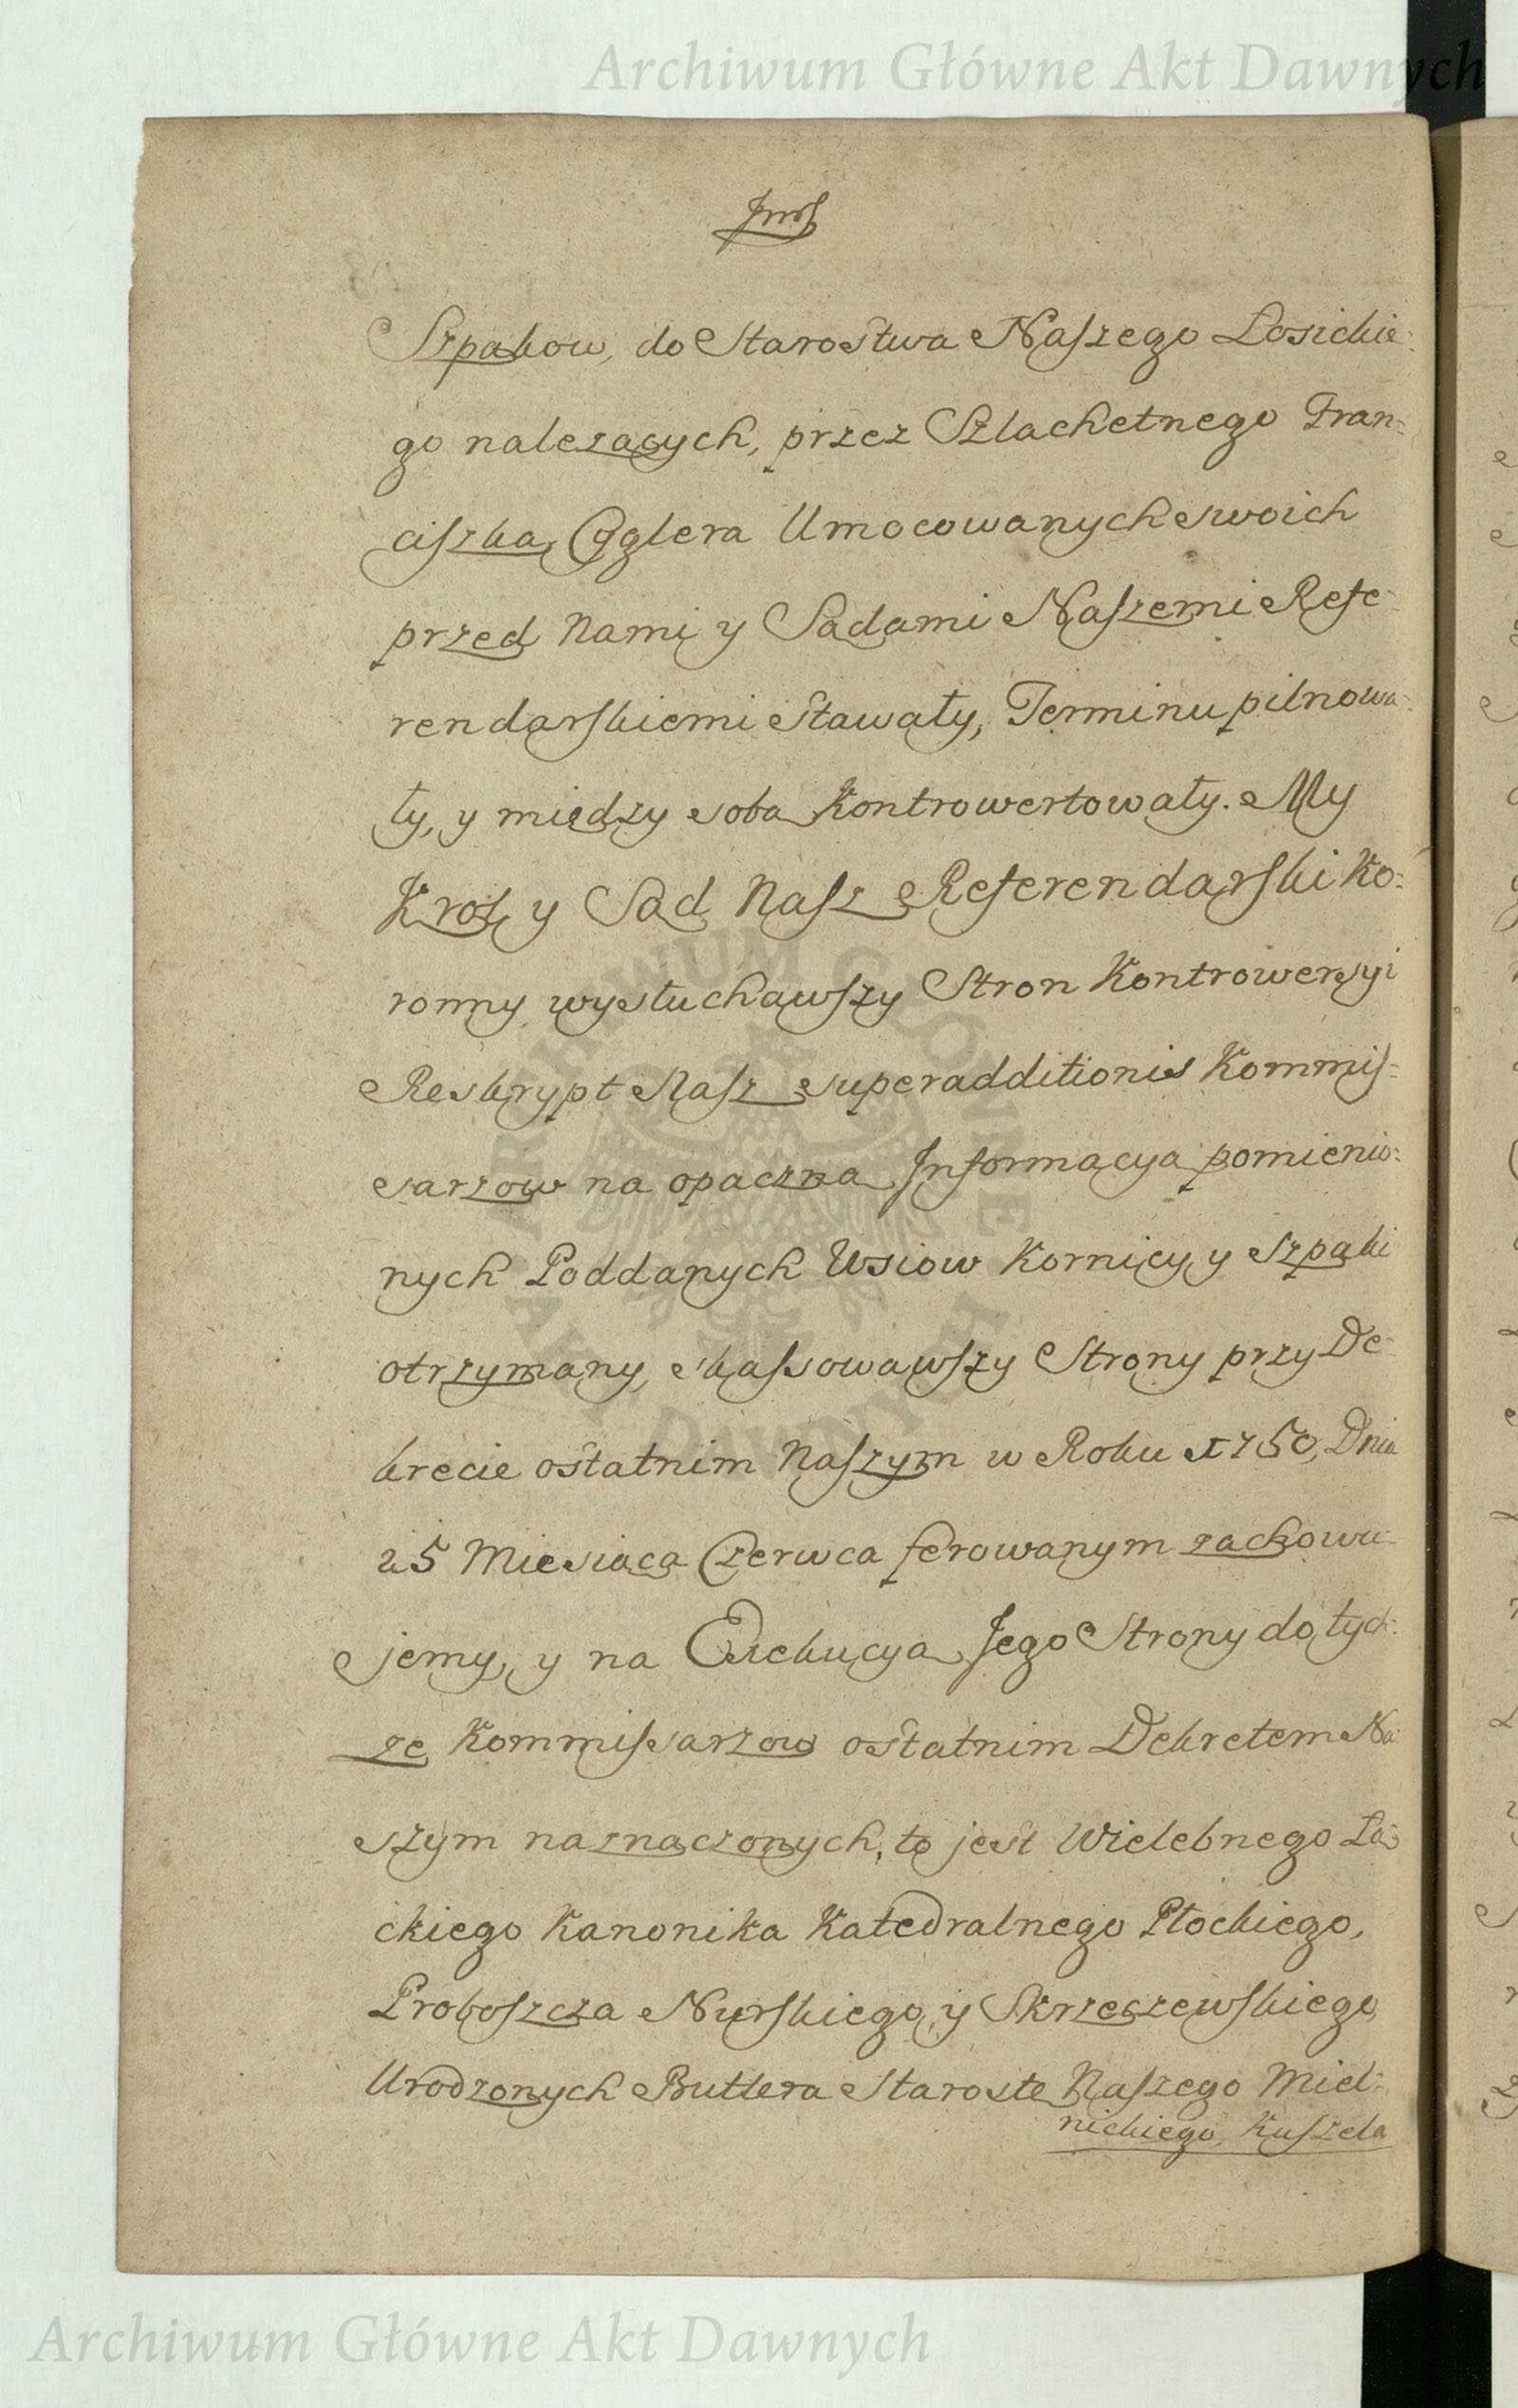 Archiwum Główne Akt Dawnych
Szpakow, do Starostwa Naszego Łosickie-
go nalezących, przez Szlachetnego Fran-
ciszka Cyglera Umocowanych swoich
przed Nami y Sadami Naszemi Refe-
rendarskiemi stawały, Terminu pilnowa-
ły, y między soba Kontrowertowały. My
Krol y Sad Nasz Referendarski Ko-
ronny wysłuchawszy Stron Kontrowersyi
Reskrypt Nasz superadditionis Kommis-
sarzow na opaczna Informacya pomienio-
nych Poddanych Wsiow Kornicy y Szpaki
otrzymany, skassowawszy Strony przy De-
krecie ostatnim Naszym w Roku 1750, Dnia
25 Miesiąca Czerwca ferowanym zachowu-
jemy, y na Exekucya Jego Strony do tych-
ze Kommissarzow ostatnim Dekretem Na-
szym naznaczonych, to jest Wielebnego Ła-
ckiego Kanonika Katedralnego Płockiego,
Proboszcza Nurskiego, y Skrzeszewskiego
Urodzonych Buttera Staroste Naszego Miel-
nickiego, Kuszela
ARCHIWUM GŁÓWNE
AKT DAWNYCH
Archiwum Główne Akt Dawnych